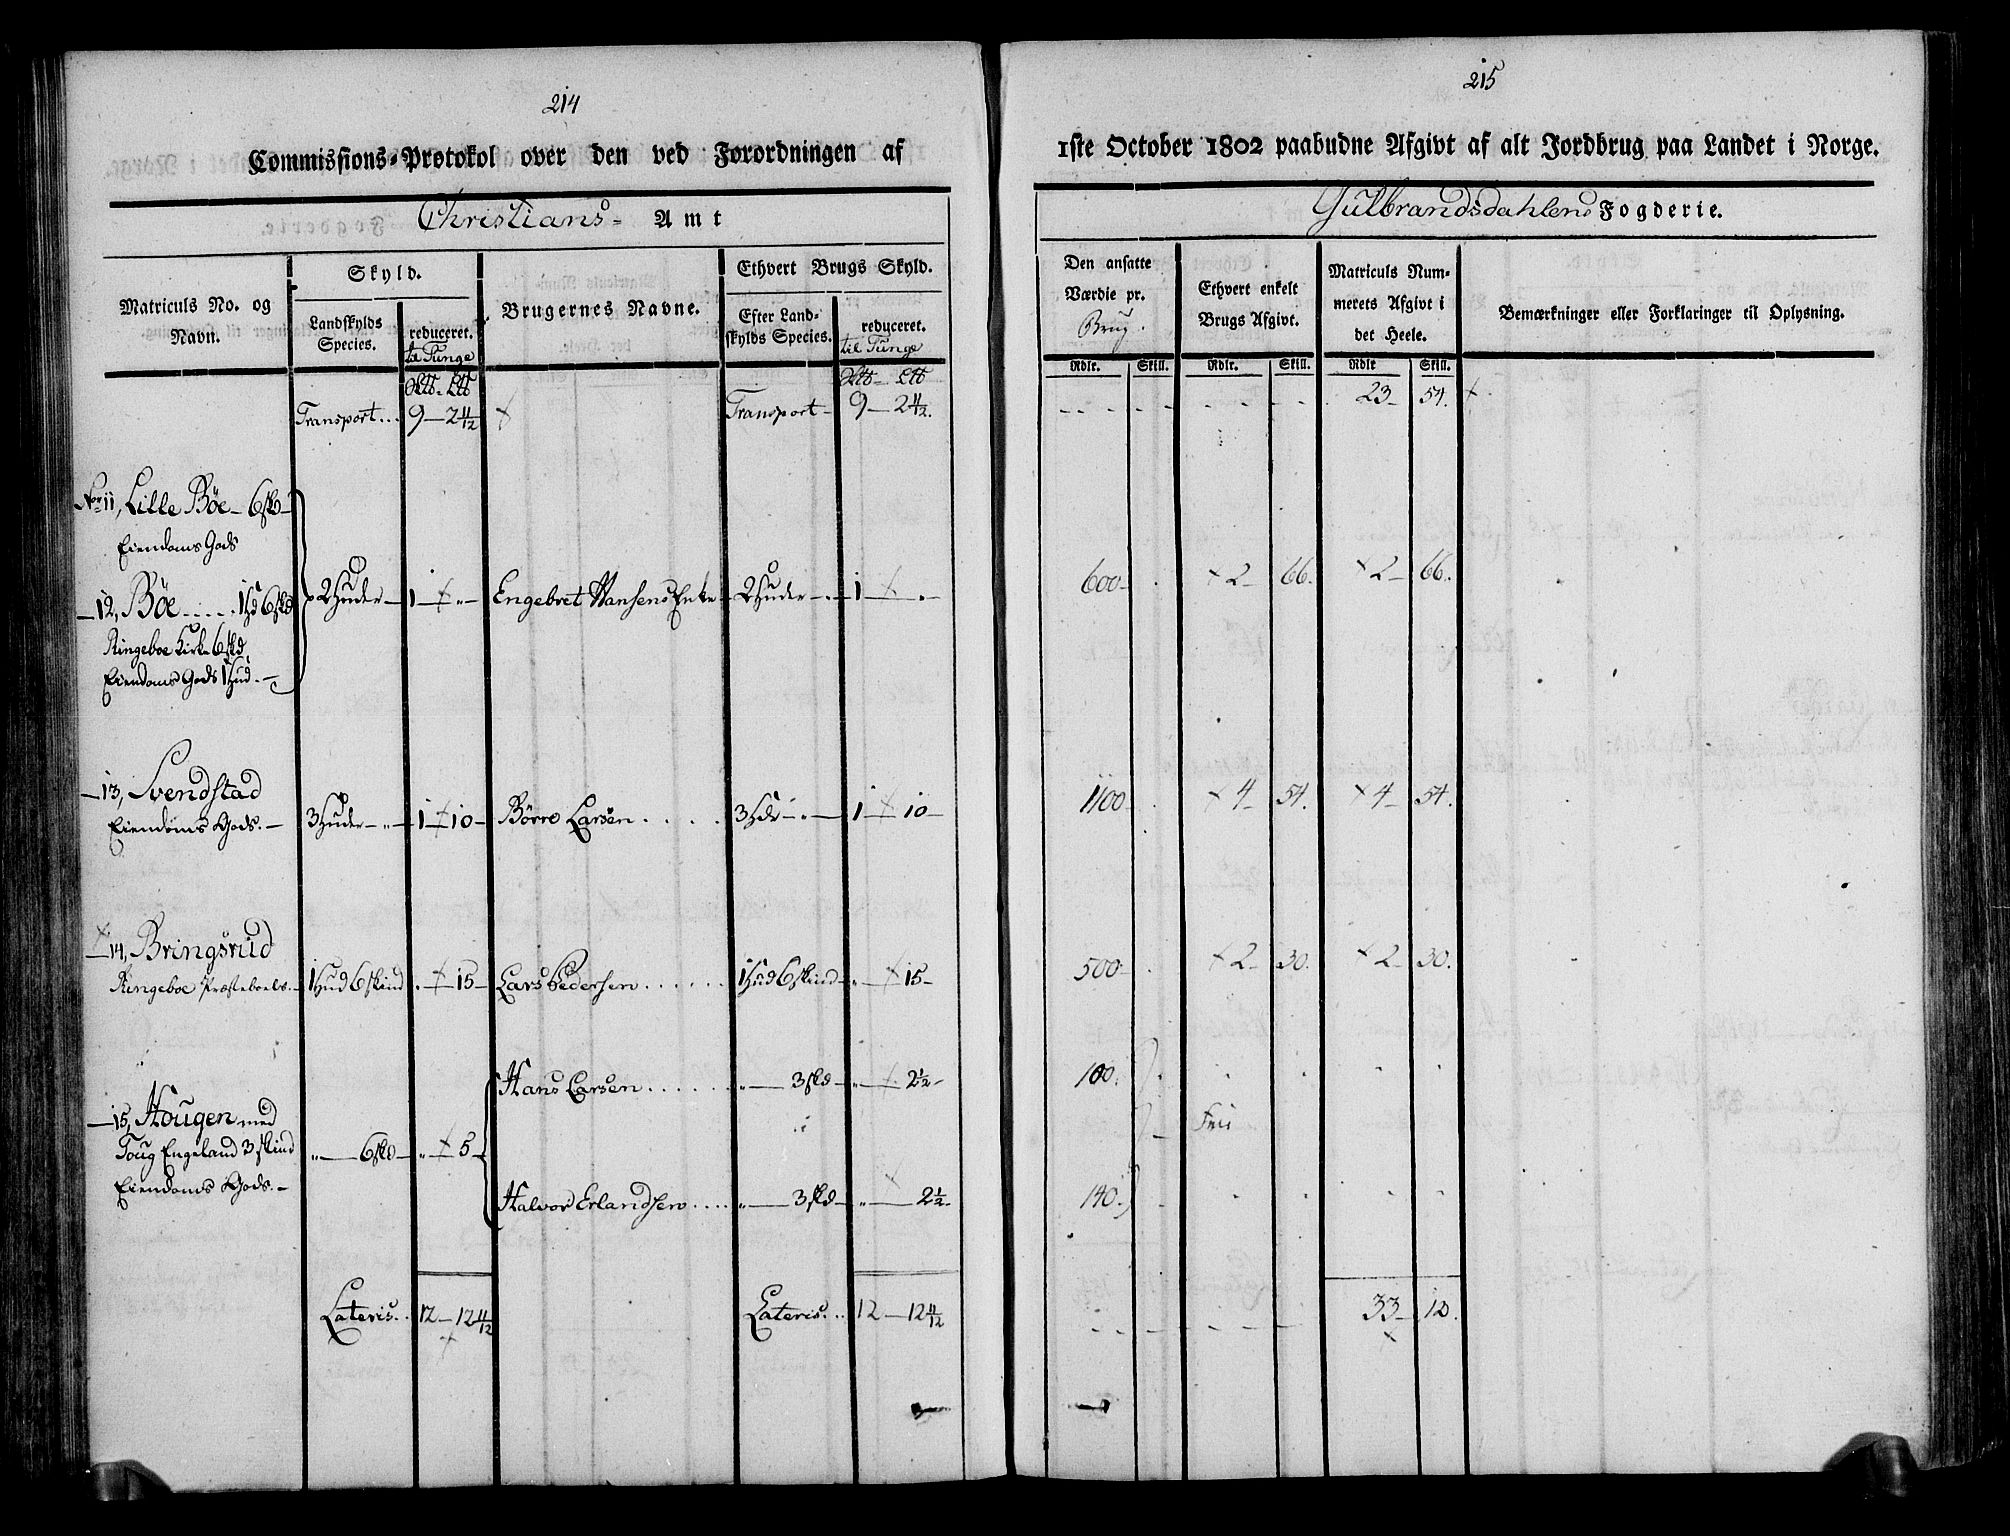 214
Commissions-Protokol over den ved Forordningen af
Christians- Amt
Matriculs No. og Navn.
Skyld.
Landskylds Species.
reduceret. til Tunge
Brugernes Navne.
Ethvert Brugs Skyld.
Efter Landskylds Species.
reduceret. til Tunge
Transport... 9 — 2 4/12
Transport — 9 — 2 4/12.
No 11, Lille Böe — 6 skd —
Eiendoms Gods
— 12, Böe ..... 1 Hd 6 skd
Ringeboe Kirke 6 skd,
Eiendoms Gods 1 Hud. —
2 Huder — 1 — + " — Engebret Hansens Enke — 2 Huder — . — 1 — + . —
— 13, Svendstad
Eiendoms Gods. — 3 Huder — " — 1 + 10 — Börre Larsen . . . . 3 Hdr — " — 1 + 10 —
+
— 14, Bringsrud
Ringeboe Præsteboels. — 1 Hud 6 skind . + 15 — Lars Pedersen ...... 1 Hud 6 skind — " + 15 —
Hans Larsen ...... " — 3 skd — " + 2 1/2 —
— 15, Hougen med
Toug Engeland 3 skind
Eiendoms Gods. — " — 6 skd — " + 5 —
Halvor Erlandsen .... " — 3 skd — " — 2 1/2 —
Lateris .. 12 — 12 4/12
Lateris . .. 12 — 12 4/12
215
1ste October 1802 paabudne Afgivt af alt Jordbrug paa Landet i Norge.
Gulbrandsdahlens Fogderie.
Den ansatte Værdie pr. Brug.
Ethvert enkelt Brugs Afgivt.
Matriculs Nummerets Afgivt i det Heele.
Bemærkninger eller Forklaringer til Oplysning.
Rdlr. Skill. Rdlr. Skill. Rdlr Skill.
23 — 54. +
600 — . + 2 — 66. + 2 — 66.
1100 — . + 4 — 54. + 4 — 54.
500 — . + 2 — 30. + 2 — 30.
100.
Frii
140.
33 — 12.
+